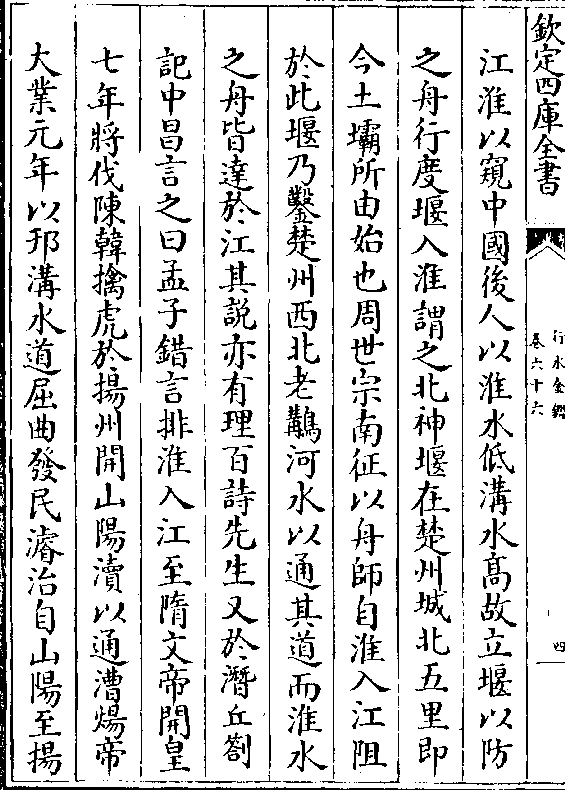 欽定四庫全書
行水金鑑
卷六十六
四
江淮以窺中國後人以淮水低溝水髙故立堰以防
之舟行度堰入淮謂之北神堰在楚州城北五里即
今土壩所由始也周世宗南征以舟師自淮入江阻
於此堰乃鑿楚州西北老鸛河水以通其道而淮水
之舟皆達於江其說亦有理百詩先生又於潛丘劄
記中昌言之曰孟子錯言排淮入江至隋文帝開皇
七年將伐陳韓擒虎於揚州開山陽瀆以通漕煬帝
大業元年以邗溝水道屈曲發民濬治自山陽至揚